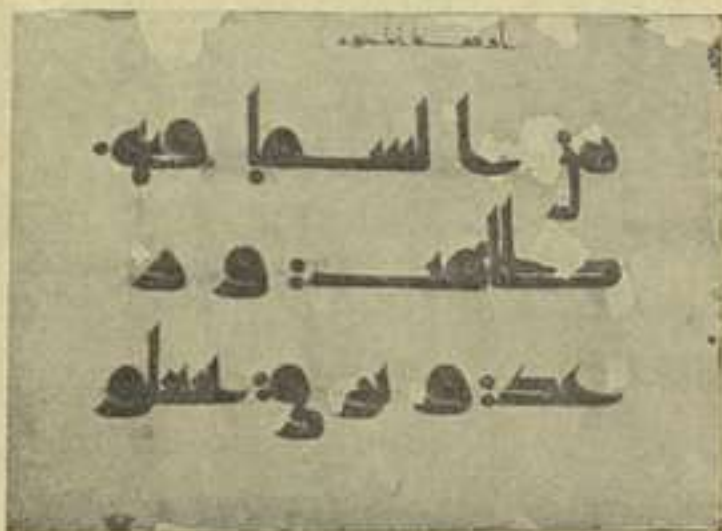 من السما فيه
ظلمت ور
عد وبرق يجعلو